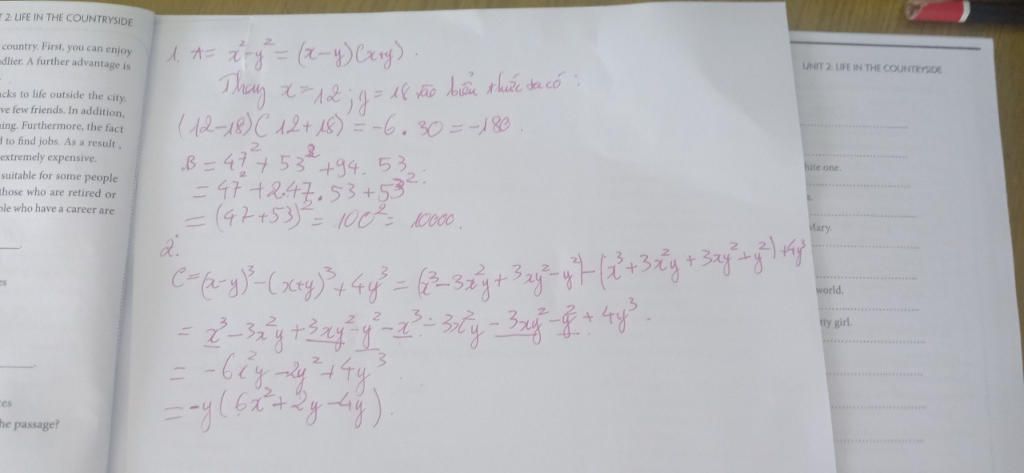 T 2: LIFE IN THE COUNTRYSIDE
country. First, you can enjoy
dlier. A further advantage is
cks to life outside the city.
ve few friends. In addition,
ing. Furthermore, the fact
to find jobs. As a result,
extremely expensive.
suitable for some people
those who are retired or
ple who have a career are
es
he passage?
1. A = x² - y² = (x - y)(x+y).
Thay x = 12; y = 18 vào biểu thức ta có:
(12-18)(12+18) = -6 . 30 = -180.
B = 47² + 53² + 94. 53
= 47² + 2.47. 53 + 53²
= (47+53)² = 100² = 10000.
2.
C = (x-y)³ - (x+y)³ + 4y³ = (x³ - 3x²y + 3xy² - y²) - (x³ + 3x²y + 3xy² + y²) + 4y³
= x³ - 3x²y + 3xy² - y² - x³ - 3x²y - 3xy² - y² + 4y³.
= -6x²y - 2y² + 4y³
= -y(6x² + 2y - 4y).
UNIT 2: LIFE IN THE COUNTRYSIDE
hite one.
Mary.
world.
tty girl.